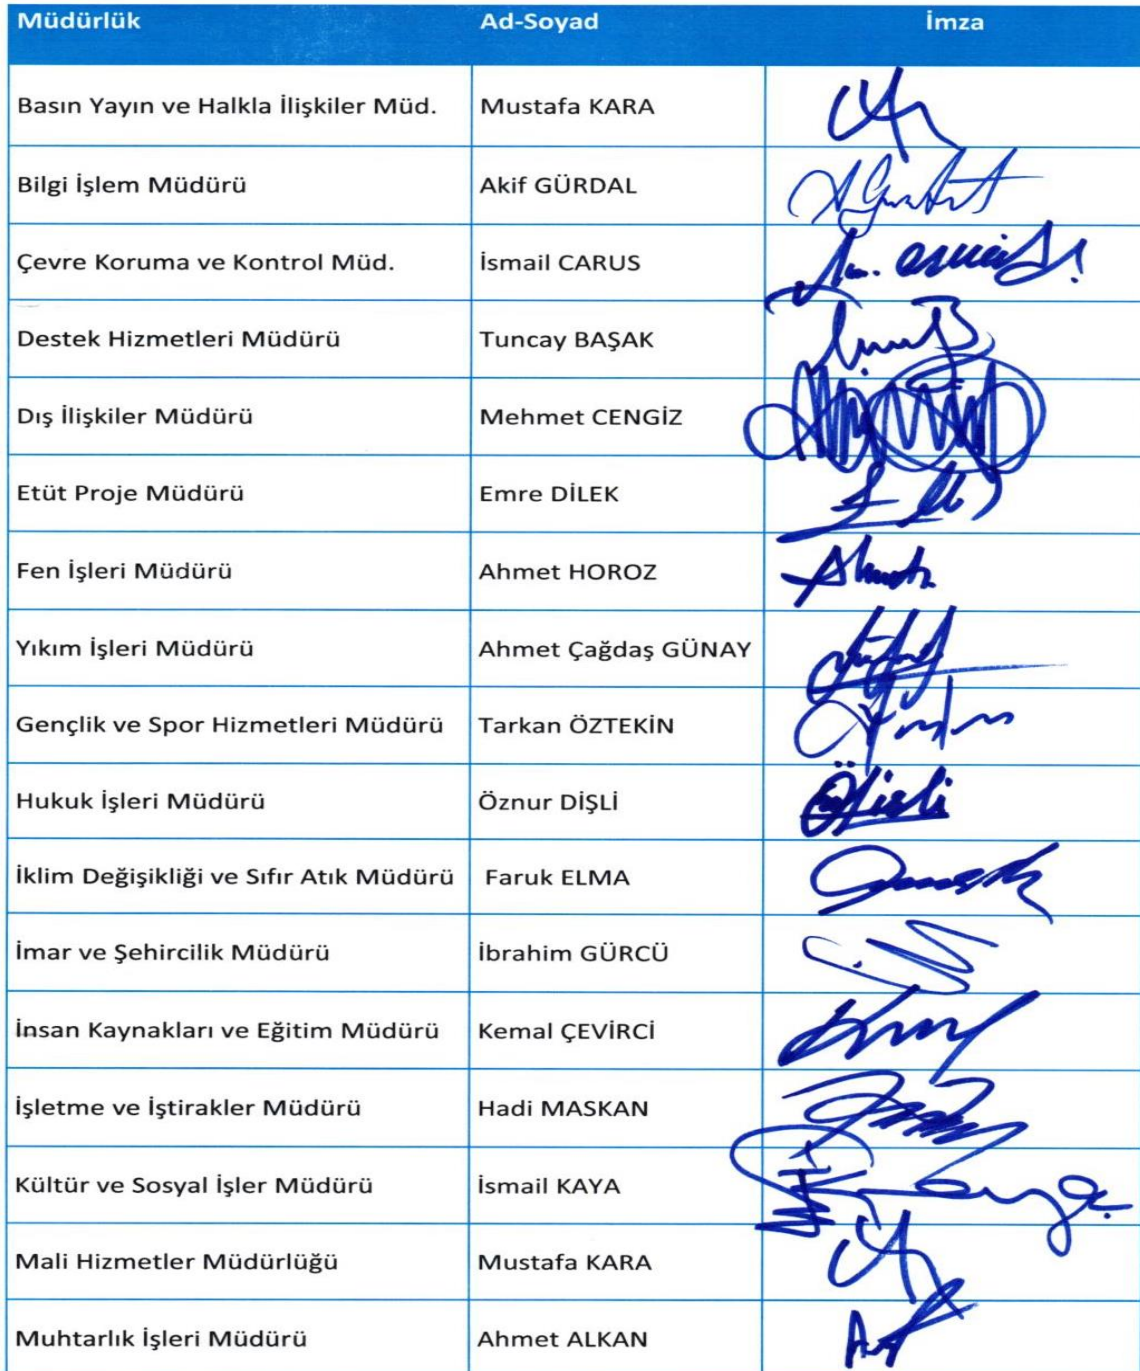 Müdürlük Ad-Soyad İmza
Basın Yayın ve Halkla İlişkiler Müd. Mustafa KARA
Bilgi İşlem Müdürü Akif GÜRDAL
Çevre Koruma ve Kontrol Müd. İsmail CARUS
Destek Hizmetleri Müdürü Tuncay BAŞAK
Dış İlişkiler Müdürü Mehmet CENGİZ
Etüt Proje Müdürü Emre DİLEK
Fen İşleri Müdürü Ahmet HOROZ
Yıkım İşleri Müdürü Ahmet Çağdaş GÜNAY
Gençlik ve Spor Hizmetleri Müdürü Tarkan ÖZTEKİN
Hukuk İşleri Müdürü Öznur DİŞLİ
İklim Değişikliği ve Sıfır Atık Müdürü Faruk ELMA
İmar ve Şehircilik Müdürü İbrahim GÜRCÜ
İnsan Kaynakları ve Eğitim Müdürü Kemal ÇEVİRCİ
İşletme ve İştirakler Müdürü Hadi MASKAN
Kültür ve Sosyal İşler Müdürü İsmail KAYA
Mali Hizmetler Müdürlüğü Mustafa KARA
Muhtarlık İşleri Müdürü Ahmet ALKAN